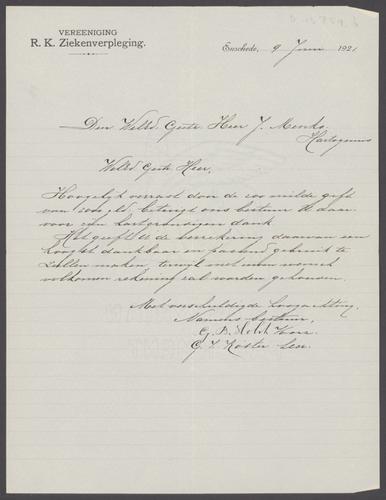 VEREENIGING
R. K. Ziekenverpleging.
Enschede, 9 Juni 1921
Den Weled. Geste. Heer J. Menko.
Weled. Geste Heer,
Hoogelijk verrast door de zoo milde gift
van betuigt ons bestuur U daar-
voor zijn hartgrondigen dank
Het geeft U de verzekering daarvan een
dankbaar en passend gebruik te
zullen maken, terwijl met uw wensch
volkomen rekening zal worden gehouden.
Met verschuldigde hoogachting,
Namens bestuur,
G. B. Voorz.
G. J. Koster Secr.